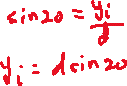 sin20 = yi/d
yi = dsin20